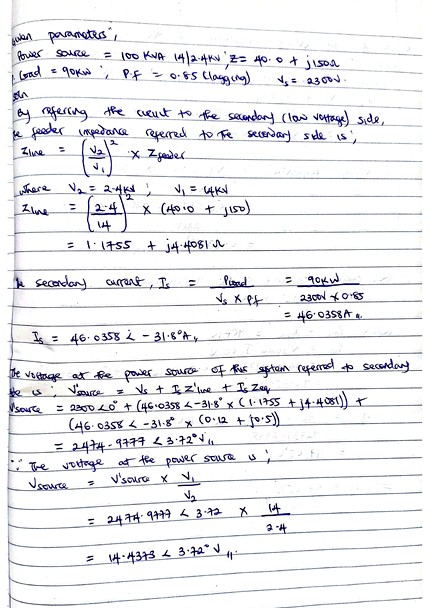 given parameters;
Power source = 100 KVA 14/2.4KV; Z = 40.0 + j150Ω
Load = 90KW; Pf = 0.85 (lagging) Vs = 2300V.
Soln
By referring the circuit to the secondary (low voltage) side,
the feeder impedance referred to the secondary side is;
Zline = (V2/V1)² × Zfeeder
where V2 = 2.4KV; V1 = 14KV
Zline = (2.4/14)² × (40.0 + j150)
= 1.1755 + j4.4081 Ω
The secondary current, Is = Pload / Vs × Pf = 90KW / 2300V × 0.85
= 46.0358A
Is = 46.0358 ∠ -31.8°A
The voltage at the power source of this system referred to secondary
side is; V'source = Vs + Is Z'line + Is Zeq
V'source = 2300∠0° + (46.0358∠-31.8° × (1.1755 + j4.4081)) +
(46.0358∠-31.8° × (0.12 + j0.5))
= 2474.9777 ∠ 3.72° V
∴ The voltage at the power source is;
Vsource = V'source × V1/V2
= 2474.9777 ∠ 3.72 × 14/2.4
= 14.4373 ∠ 3.72° V